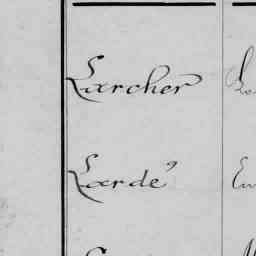 Larcher
Lardé